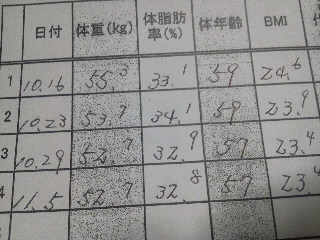 日付 体重(kg) 体脂肪率(%) 体年齢 BMI
1 10.16 55.3 33.1 59 24.6
2 10.23 53.7 34.1 59 23.9
3 10.29 52.7 32.9 57 23.4
4 11.5 52.7 32.8 57 23.4